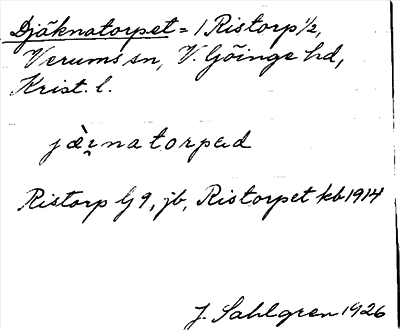 Djäknatorpet = 1 Ristorp ½,
Verums sn, V. Göinge hd,
Krist. l.
jæ̀r̥natorpəd
Ristorp G 9, jb, Ristorpet kb 1914
J. Sahlgren 1926